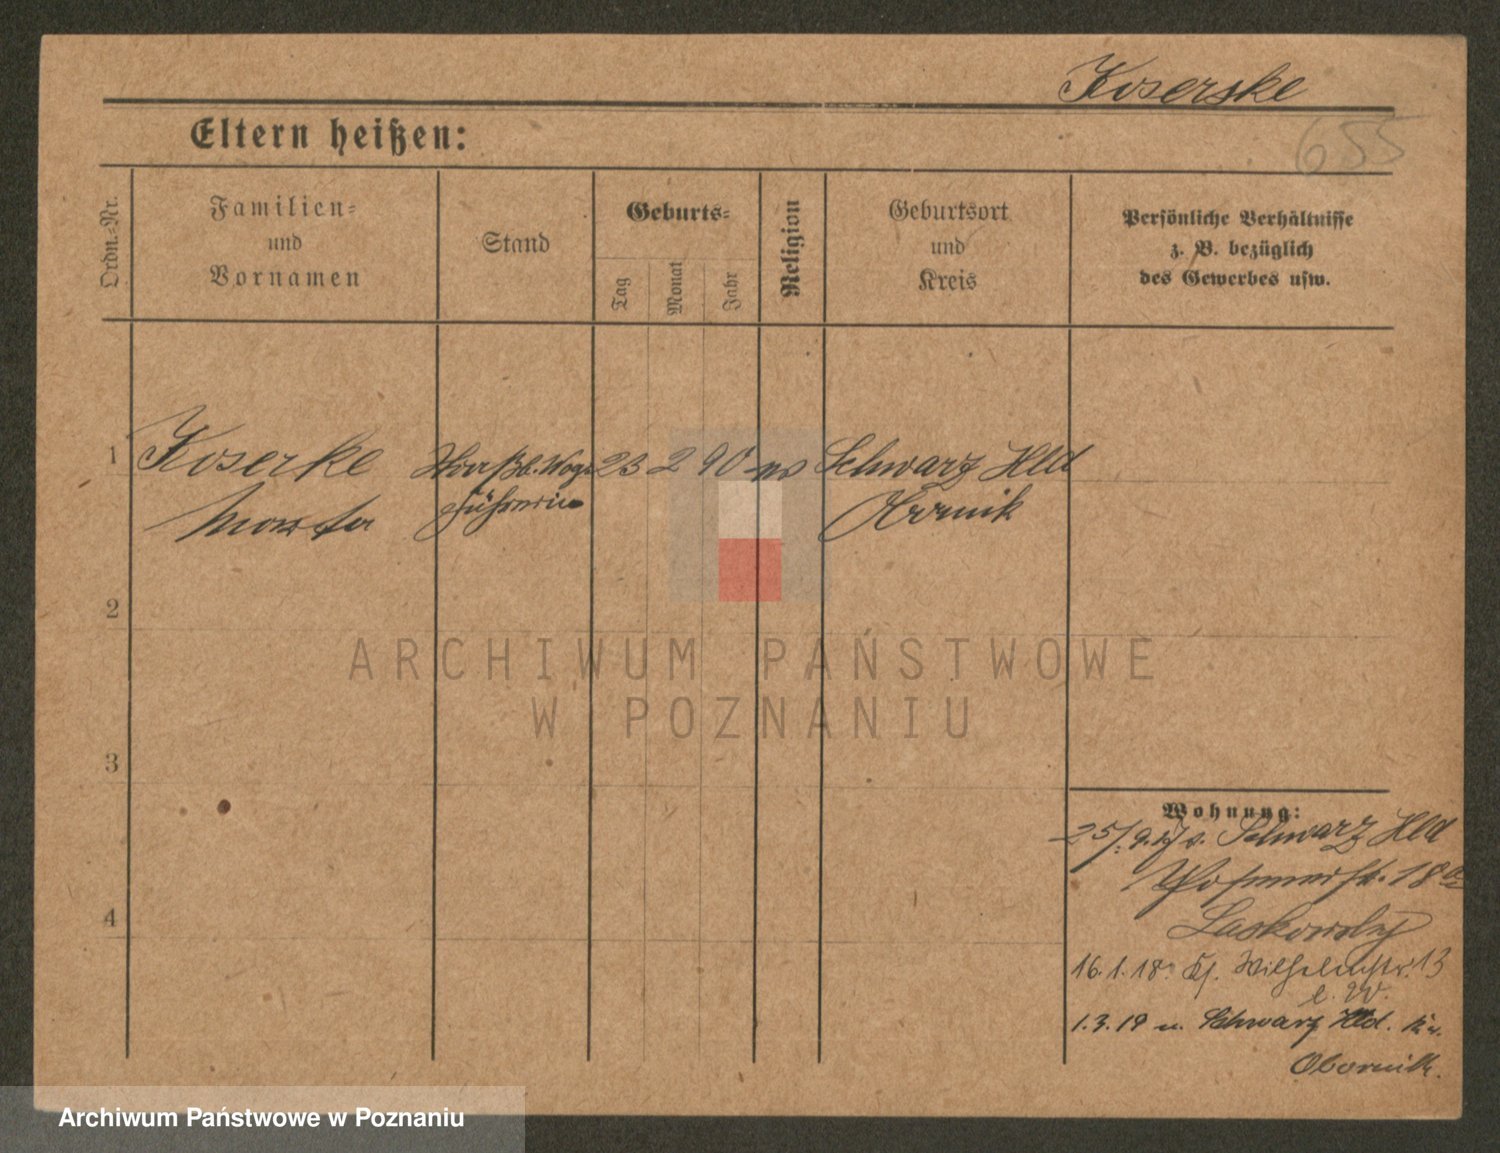 Koserske
655
Eltern heißen:
Ordn.-Nr.
Familien-
und
Vornamen
Stand
Geburts-
Tag
Monat
Jahr
Religion
Geburtsort
und
Kreis
Persönliche Verhältnisse
z. B. bezüglich
des Gewerbes usw.
1
Koserke
Straßb. Wag.
23 2 90
Schwarz Hld
führerin
Obornik
2
3
4
Wohnung:
25/9.17 v. Schwarz Hld
18a
Laskowsky
16.1.18. Kl. Wilhelmstr. 13
b. W.
1.3.19 n. Schwarz Hld. Kr.
Obornik.
ARCHIWUM PAŃSTWOWE
W POZNANIU
Archiwum Państwowe w Poznaniu